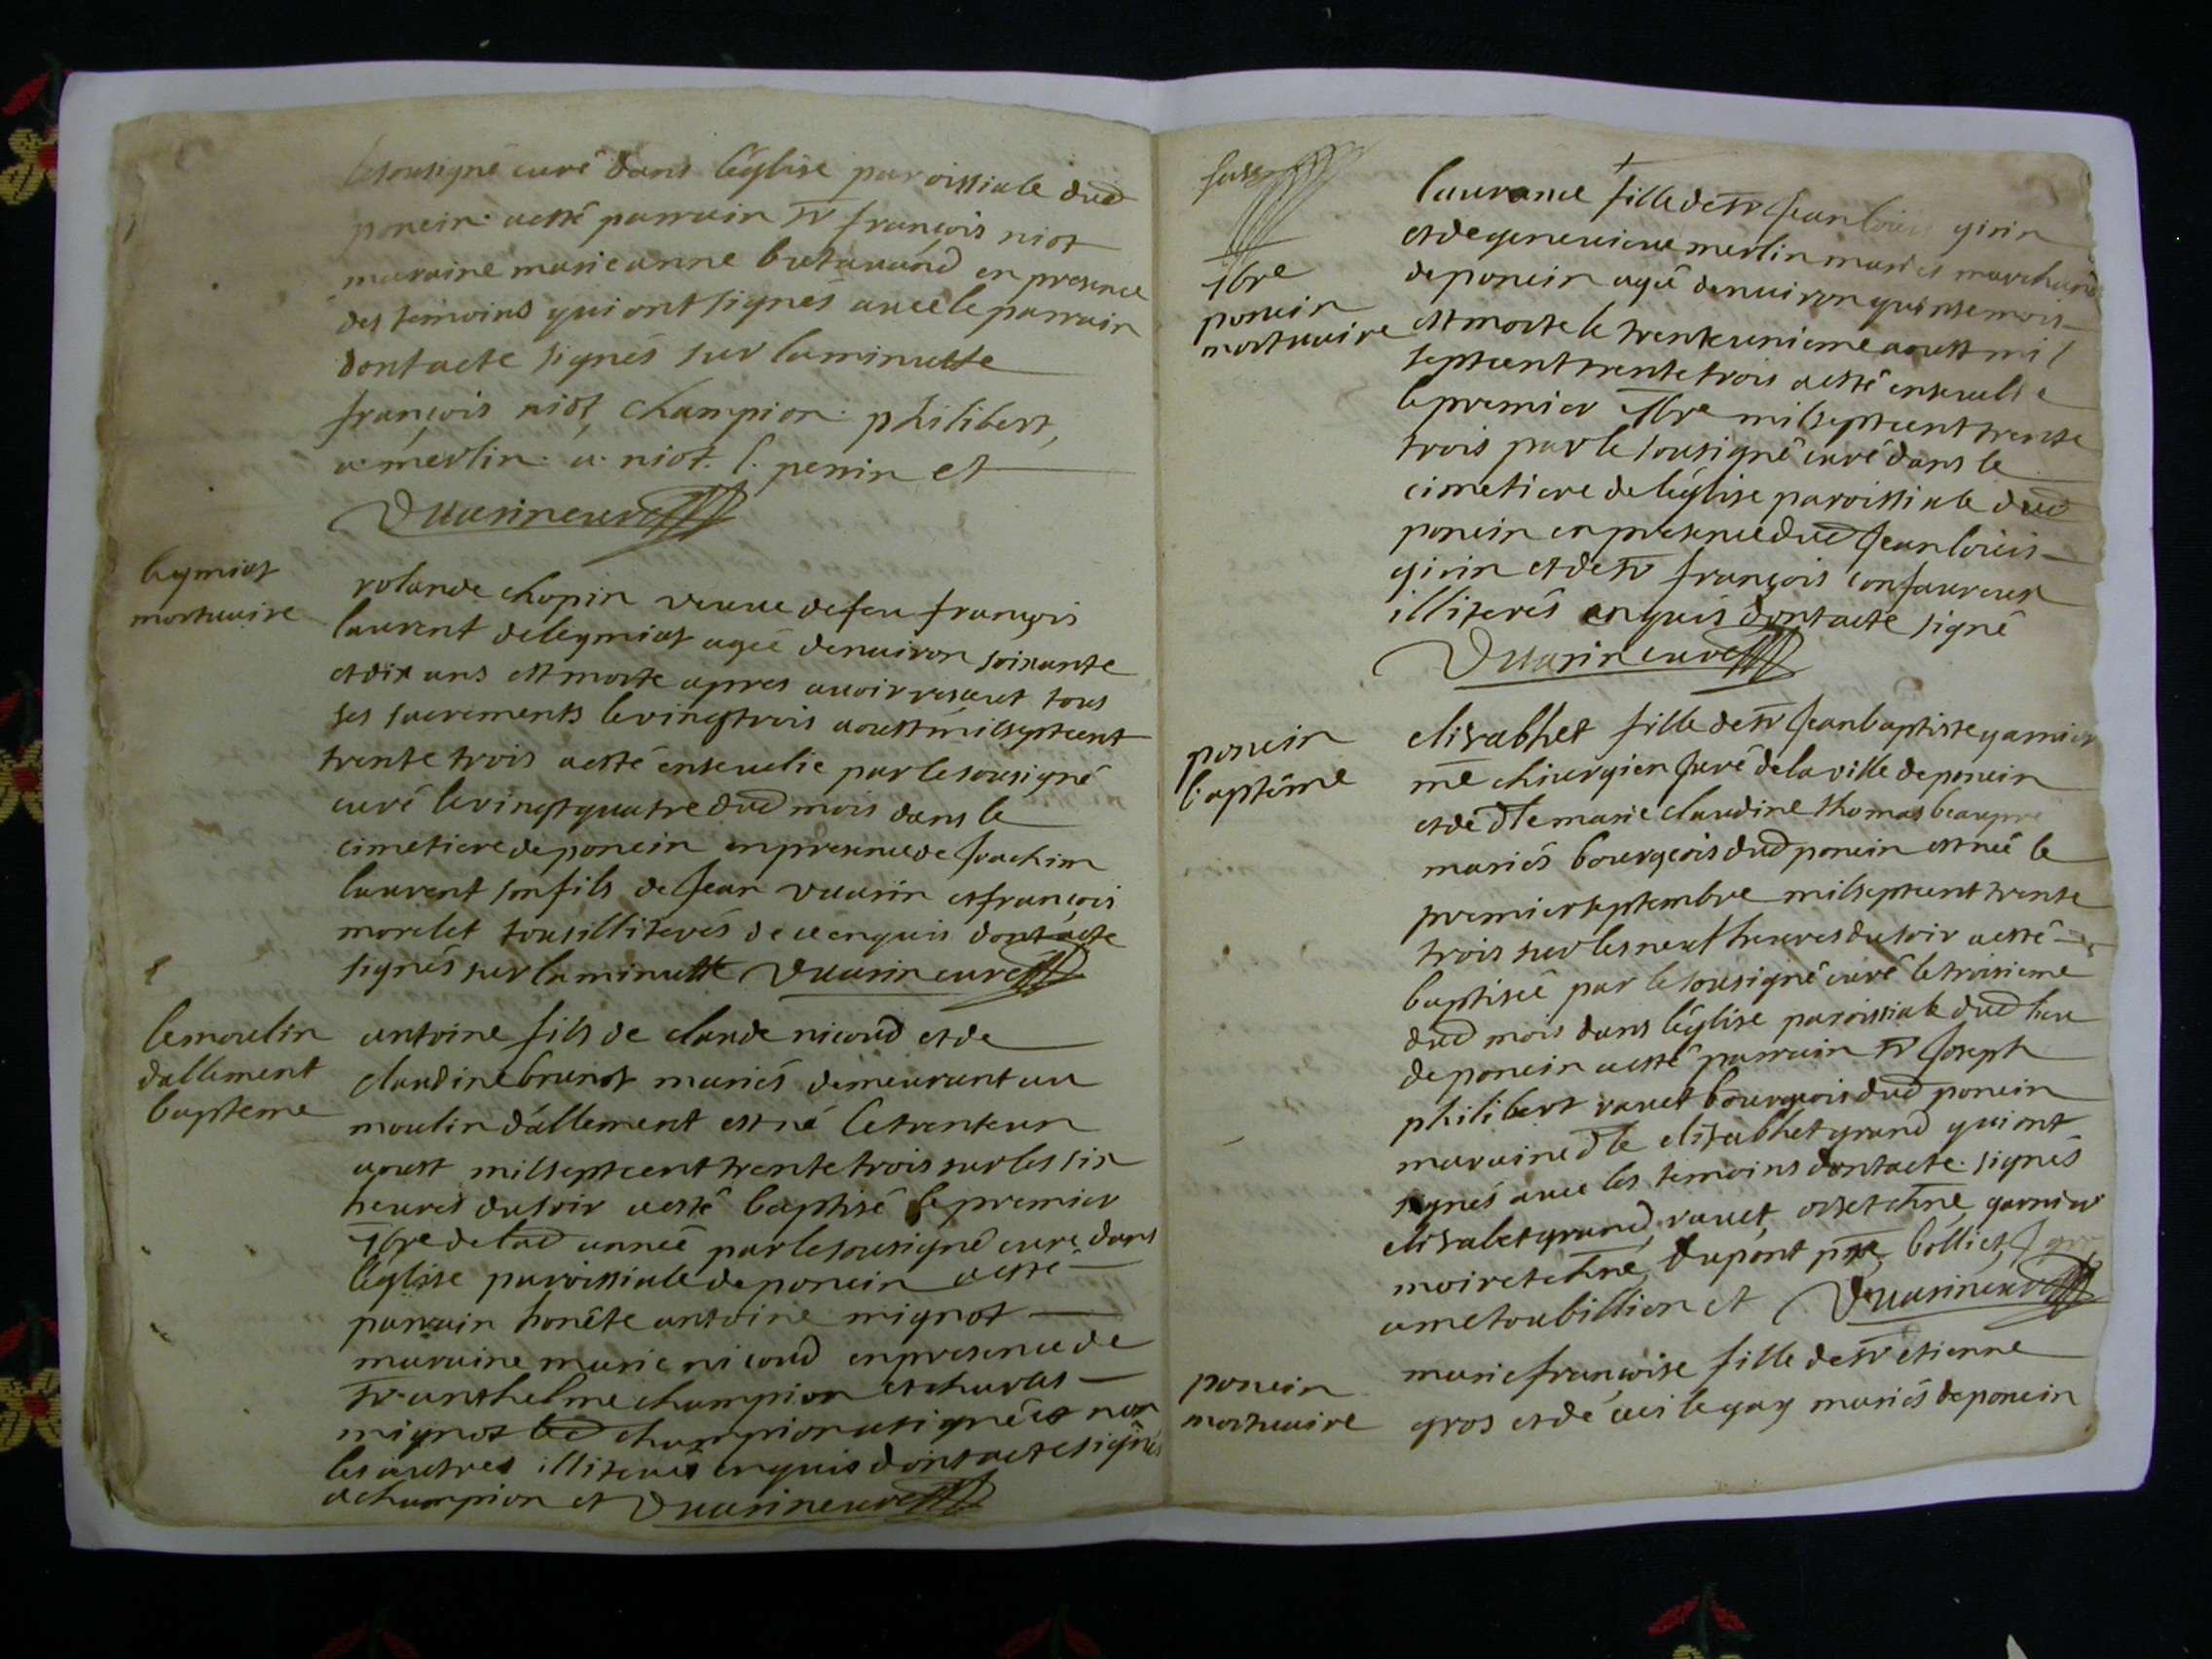 le sousigné curé dans l'église paroissiale dud
poncin a esté parrain sr françois niot
maraine marie anne butavand en presence
des temoins qui ont signés avec le parrain
dont acte signés sur la minutte
françois niot, champion. philibert,
a. merlin. a. niot. l. perrin et
Vuarin curé
leymiat
mortuaire
rolande chopin veuve de feu françois
laurent de leymiat agée denviron soixante
et dix ans est morte apres avoir resceut tous
ses sacrements le vingtrois aoust mil septcent
trente trois a esté ensevelie par le sousigné
curé le vingt quatre dud mois dans le
cimetiere de poncin en presence de Joachim
laurent son fils de Jean vuarin et françois
morelet tous illiterés de ce enquis dont acte
signés sur la minutte Vuarin curé
le moulin
dallement
bapteme
antoine fils de claude nicoud et de
claudine brunot mariés demeurant au
moulin d'allement est né le trente un
aoust mil septcent trente trois sur les six
heures du soir a esté baptisé le premier
7bre de lad année par le sousigné curé dans
léglise paroissiale de poncin a esté
parrain honête antoine mignot
maraine marie nicoud en presence de
sr anthelme champion et charles
mignot led champion a signé et non
les autres illiterés enquis dont acte signés
a champion et Vuarin curé
7bre
poncin
mortuaire
laurance fille de sr Jean louis girin
et de genevieve merlin mariés marchand
de poncin agée denviron quinse mois
est morte le trente unieme aoust mil
septcent trente trois a esté ensevelie
le premier 7bre mil septcent trente
trois par le sousigné curé dans le
cimetiere de l'église paroissiale dud
poncin en presence dud Jean louis
girin et de sr françois confavreux
illiterés enquis dont acte signé
Vuarin curé
poncin
baptême
elisabhet fille de sr Jean baptiste garnier
me chiurgien Juré de la ville de poncin
et de dlle marie claudine thomas beaupre
mariés bourgeois dud poncin est née le
premier septembre mil septcent trente
trois sur les neuf heures du soir a esté
baptisée par le sousigné curé le troisieme
dud mois dans l'église paroissiale dud lieu
de poncin a esté parrain sr Joseph
philibert ravet bourgeois dud poncin
maraine dlle elisabhet grand qui ont
signés avec les temoins dont acte signés
elisabet grand, ravet, orset chne, garnier
moiret chne, dupont ptre, bolliet, J
ame toubillion et Vuarin curé
poncin
mortuaire
marie françoise fille de sr etienne
gros et de legay mariés de poncin